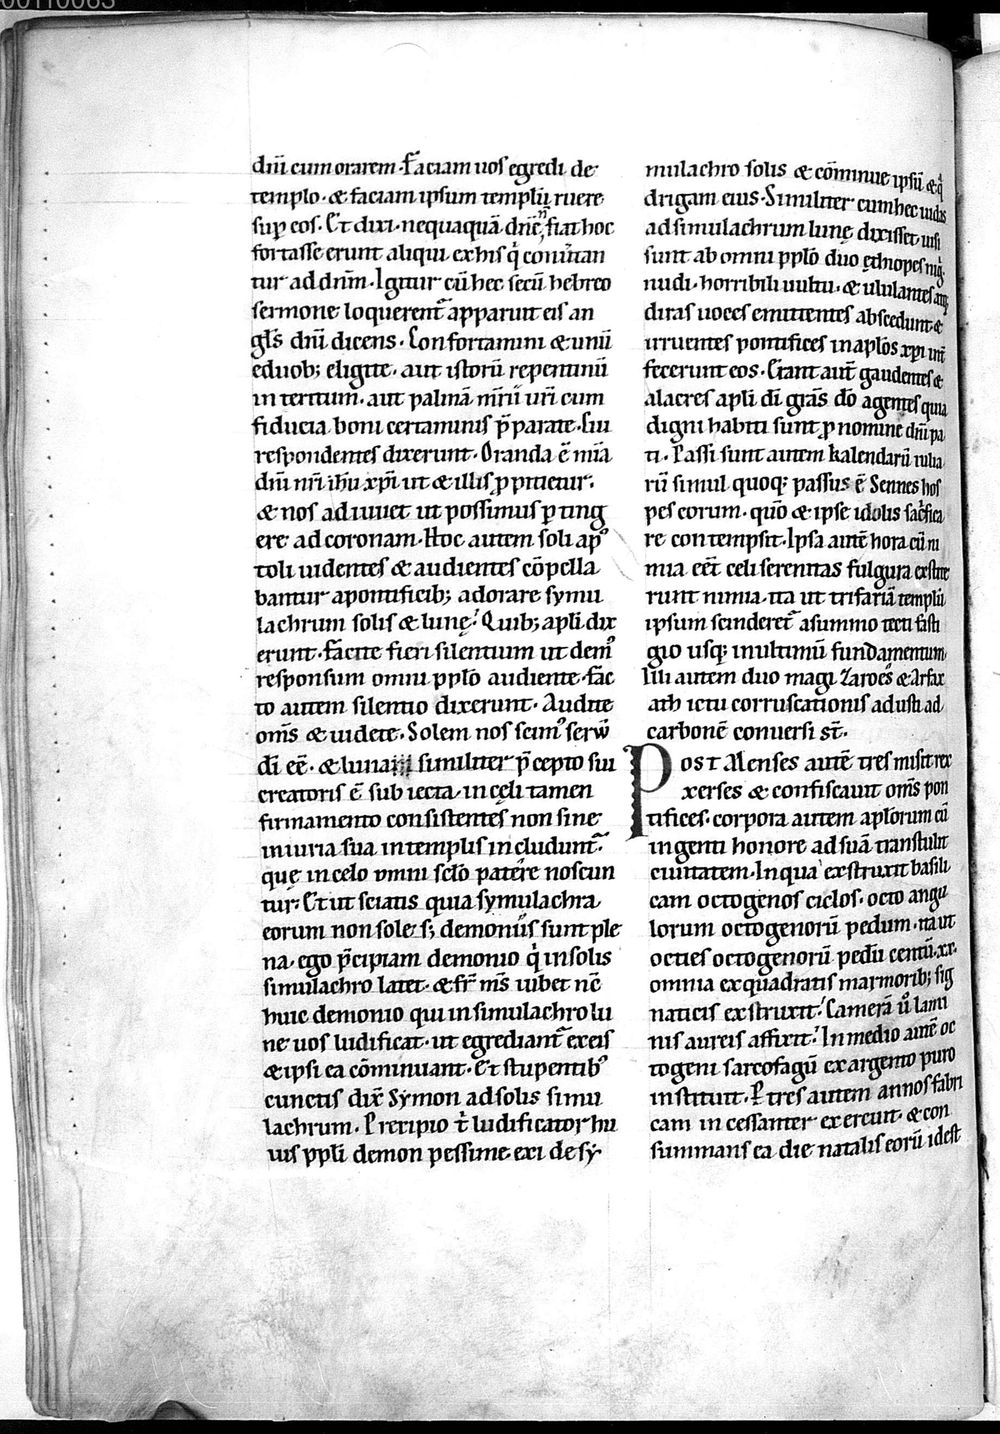 00110063
dn̄i cum orarem. Faciam uos egredi de
templo. & faciam ipsum templū ruere
sup̱ eos. Et dixi. nequaquā dn̄e, fiat hoc
fortasse erunt aliqui ex his q̇ conūtan
tur ad dn̄m. Igitur cū hec secū hebreo
sermone loquerent̄ apparuit eis an
gl̄s dn̄i dicens. Confortamini & unū
e duob; eligite. aut istorū repentinū
interitum. aut palmā m̄rii ur̄i cum
fiducia boni certaminis p̄parate. Cui
respondentes dixerunt. Oranda ē mīa
dn̄i nr̄i ih̄u xp̄i ut & illis ꝓpitietur.
& nos adiuuet ut possimus ꝑting
ere ad coronam. Hoc autem soli ap̉
toli uidentes & audientes cōpella
bantur a pontificib; adorare symu
lachrum solis & lunę. Quib; apl̄i dix
erunt. Facite fieri silentium ut dem̉
responsum omni pplo̅ audiente. Fac
to autem silentio dixerunt. Audite
om̄s & uidete. Solem nos scim̉ seruū
dī eē. & lunam similiter p̄cepto sui
creatoris ē subiecta. in cęli tamen
firmamento consistentes non sine
iniuria sua in templis includunt̄.
quę in celo omni sclo̅ patere noscun
tur. Et ut sciatis quia symulachra
eorum non sole s; demoniis sunt ple
na. ego p̄cipiam demonio q̇ in solis
simulachro latet. & fr̄ m̄s iubet nc̄
huic demonio qui in simulachro lu
ne uos ludificat. ut egrediant̄ ex eis
& ipsi ea cōminuant. Et stupentib̉
cunctis dix̄ Symon ad solis simu
lachrum. Precipio t̄ ludificator hu
ius ppl̄i demon pessime exi de sy
mulachro solis & cōminue ipsū & q̇
drigam eius. Similiter cum hec iudas
ad simulachrum lunę dixisset. uisi
sunt ab omni pplo̅ duo ęthiopes nig̊
nudi. horribili uultu. & ululantes atq;
diras uoces emittentes abscedunt. &
irruentes pontifices in apl̄os xp̄i int̄
fecerunt eos. Erant aut̄ gaudentes &
alacres apl̄i dī grās do̅ agentes quia
digni habiti sunt ꝓ nomine dn̄i pa
ti. Passi sunt autem kalendarū iulia
rū simul quoq; passus ē Sennes hos
pes eorum. quo̅ & ipse idolis sacrifica
re contempsit. Ipsa autē hora cū ni
mia eēt celi serenitas fulgura exstite
runt nimia. ita ut trifariā templū
ipsum scinderet̄ a summo tecti fasti
gio usq; in ultimū fundamentum.
Illi autem duo magi Zaroes & Arfax
ath ictu corruscationis adusti ad
carbonē conuersi st̄.
Post Menses autē tres misit rex
xerses & confiscauit om̄s pon
tifices. corpora autem apl̄orum cū
ingenti honore ad suā transtulit
ciuitatem. In qua exstruxit basili
cam octogenos ciclos. octo angu
lorum octogenorū pedum. ita ut
octies octogenorū pedū centū. xx.
omnia ex quadratis marmorib; sig
naticis exstruxit. Camerā ů lami
nis aureis affixit. In medio autē oc
togeni sarcofagū ex argento puro
instituit. Ꝑ tres autem annos fabri
cam incessanter exercuit. & con
summans ea die natalis eorū idest